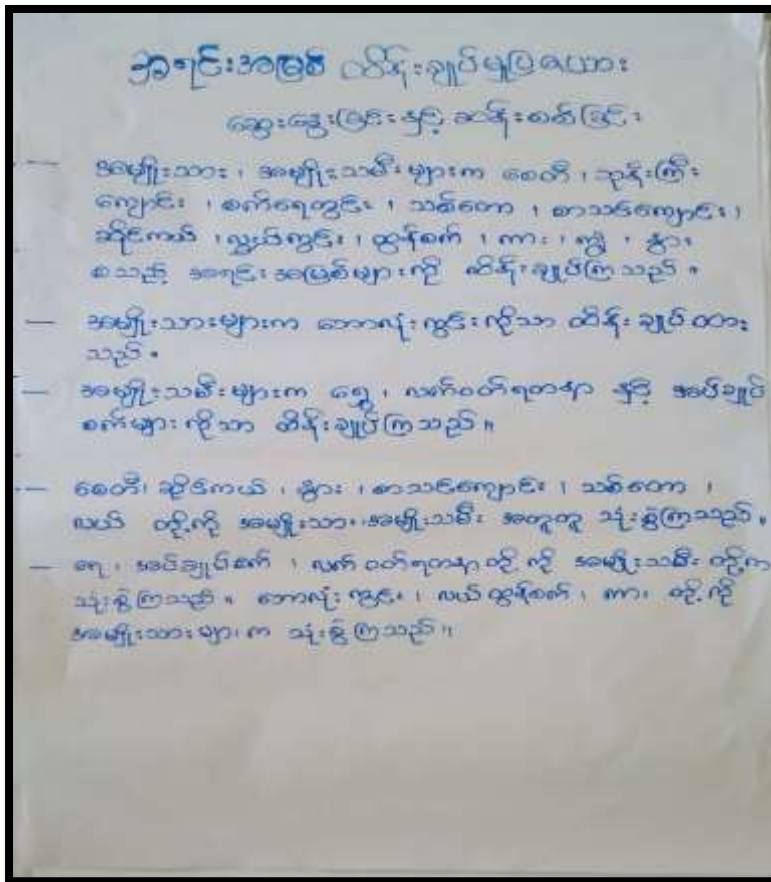 အရင်းအမြစ် ထိန်းချုပ်မှုပြဇယား
ဆွေးနွေးခြင်းနှင့် ဆန်းစစ်ခြင်း
— အမျိုးသား ၊ အမျိုးသမီးများက စေတီ ၊ ဘုန်းကြီး
ကျောင်း ၊ စက်ရေတွင်း ၊ သစ်တော ၊ စာသင်ကျောင်း ၊
ဆိုင်ကယ် ၊ ထွန်စက် ၊ ကား ၊ ကျွဲ ၊ နွား
စသည့် အရင်းအမြစ်များကို ထိန်းချုပ်ကြသည် ။
— အမျိုးသားများက ဘောလုံးကွင်းကိုသာ ထိန်းချုပ်ထား
သည် ။
— အမျိုးသမီးများက ရွှေ ၊ လက်ဝတ်ရတနာ နှင့် အပ်ချုပ်
စက်များကိုသာ ထိန်းချုပ်ကြသည် ။
— စေတီ၊ ဆိုင်ကယ် ၊ နွား ၊ စာသင်ကျောင်း ၊ သစ်တော ၊
လယ် တို့ကို အမျိုးသား၊ အမျိုးသမီး အတူတူ သုံးစွဲကြသည် ။
— ရေ ၊ အပ်ချုပ်စက် ၊ လက်ဝတ်ရတနာတို့ကို အမျိုးသမီးတို့က
သုံးစွဲကြသည် ။ ဘောလုံးကွင်း ၊ လယ်ထွန်စက် ၊ ကား တို့ကို
အမျိုးသားများက သုံးစွဲကြသည် ။